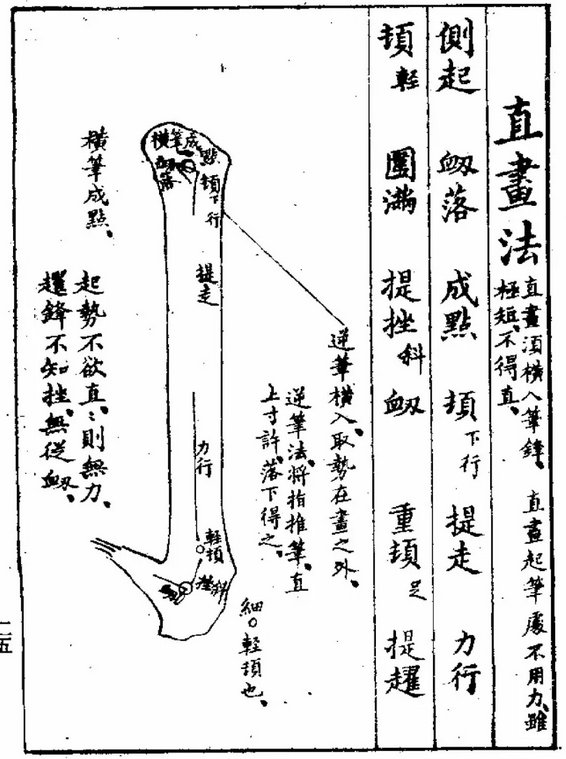 直畫法
直畫須橫入筆鋒、直畫起筆處不用力、雖
極短、不得直、
側起 衂落 成點 頓下行 提走 力行
頓輕 圓滿 提挫斜 衂 重頓足 提趯
逆筆橫入、取勢在畫之外、
逆筆法、將指推筆、直
上寸許、落下得之、
細〇輕頓也、
橫筆成點
衂落
頓下行
提走
力行
輕頓
挫斜
橫筆成點、
起勢不欲直、〻則無力、
趯鋒不知挫、無從衂、